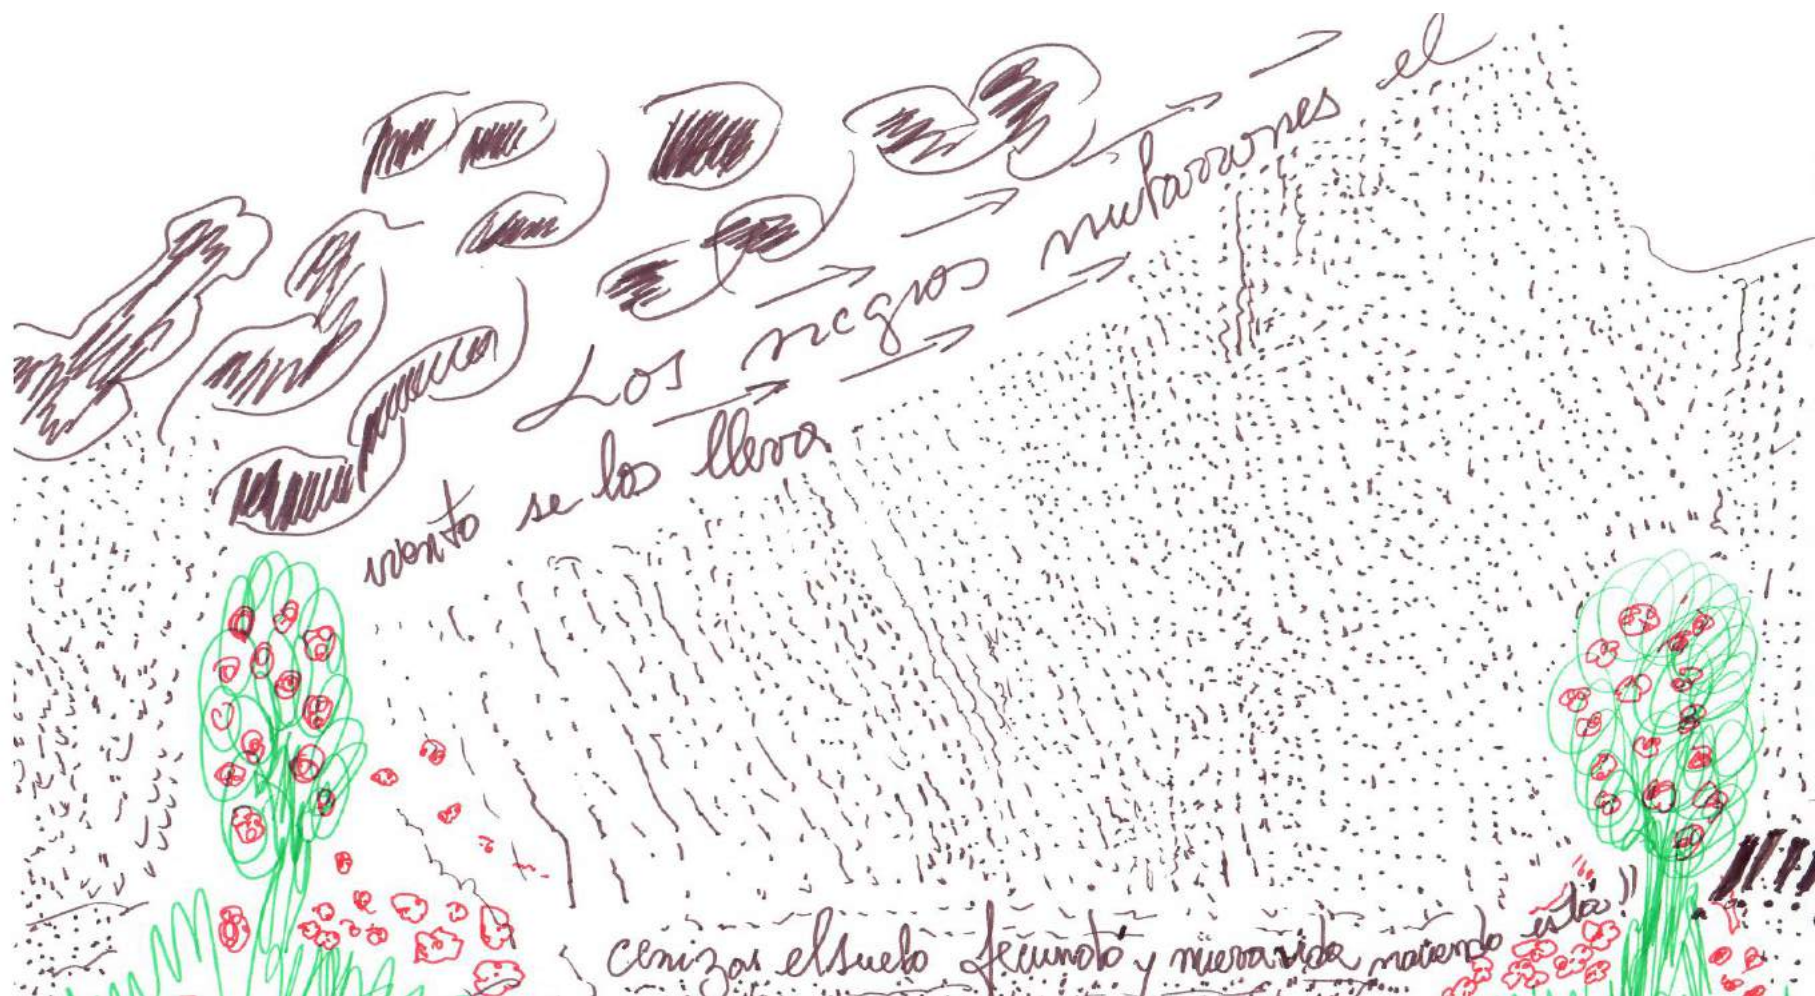 Los negros nubarrones el
viento se los lleva
cenizas el suelo fecundó y nueva vida naciendo está"